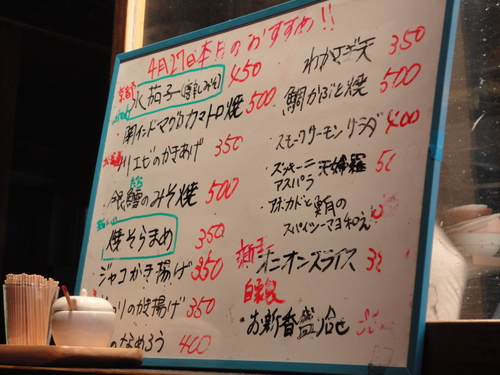 4月27日本日のおすすめ!!
水茄子
450
南インドマグロカマトロ焼 500
川エビのかきあげ 350
銀鱈のみそ焼 500
焼そらまめ 350
ジャコかき揚げ 350
のりのかき揚げ 350
のなめろう 400
わかさぎ天 350
鯛かぶと焼 500
スモークサーモンサラダ 400
ズッキーニ
アスパラ 天婦羅
アボカドと鮪の
スパイシーマヨ和え
新玉
オニオンスライス
自家製
・お新香盛合せ